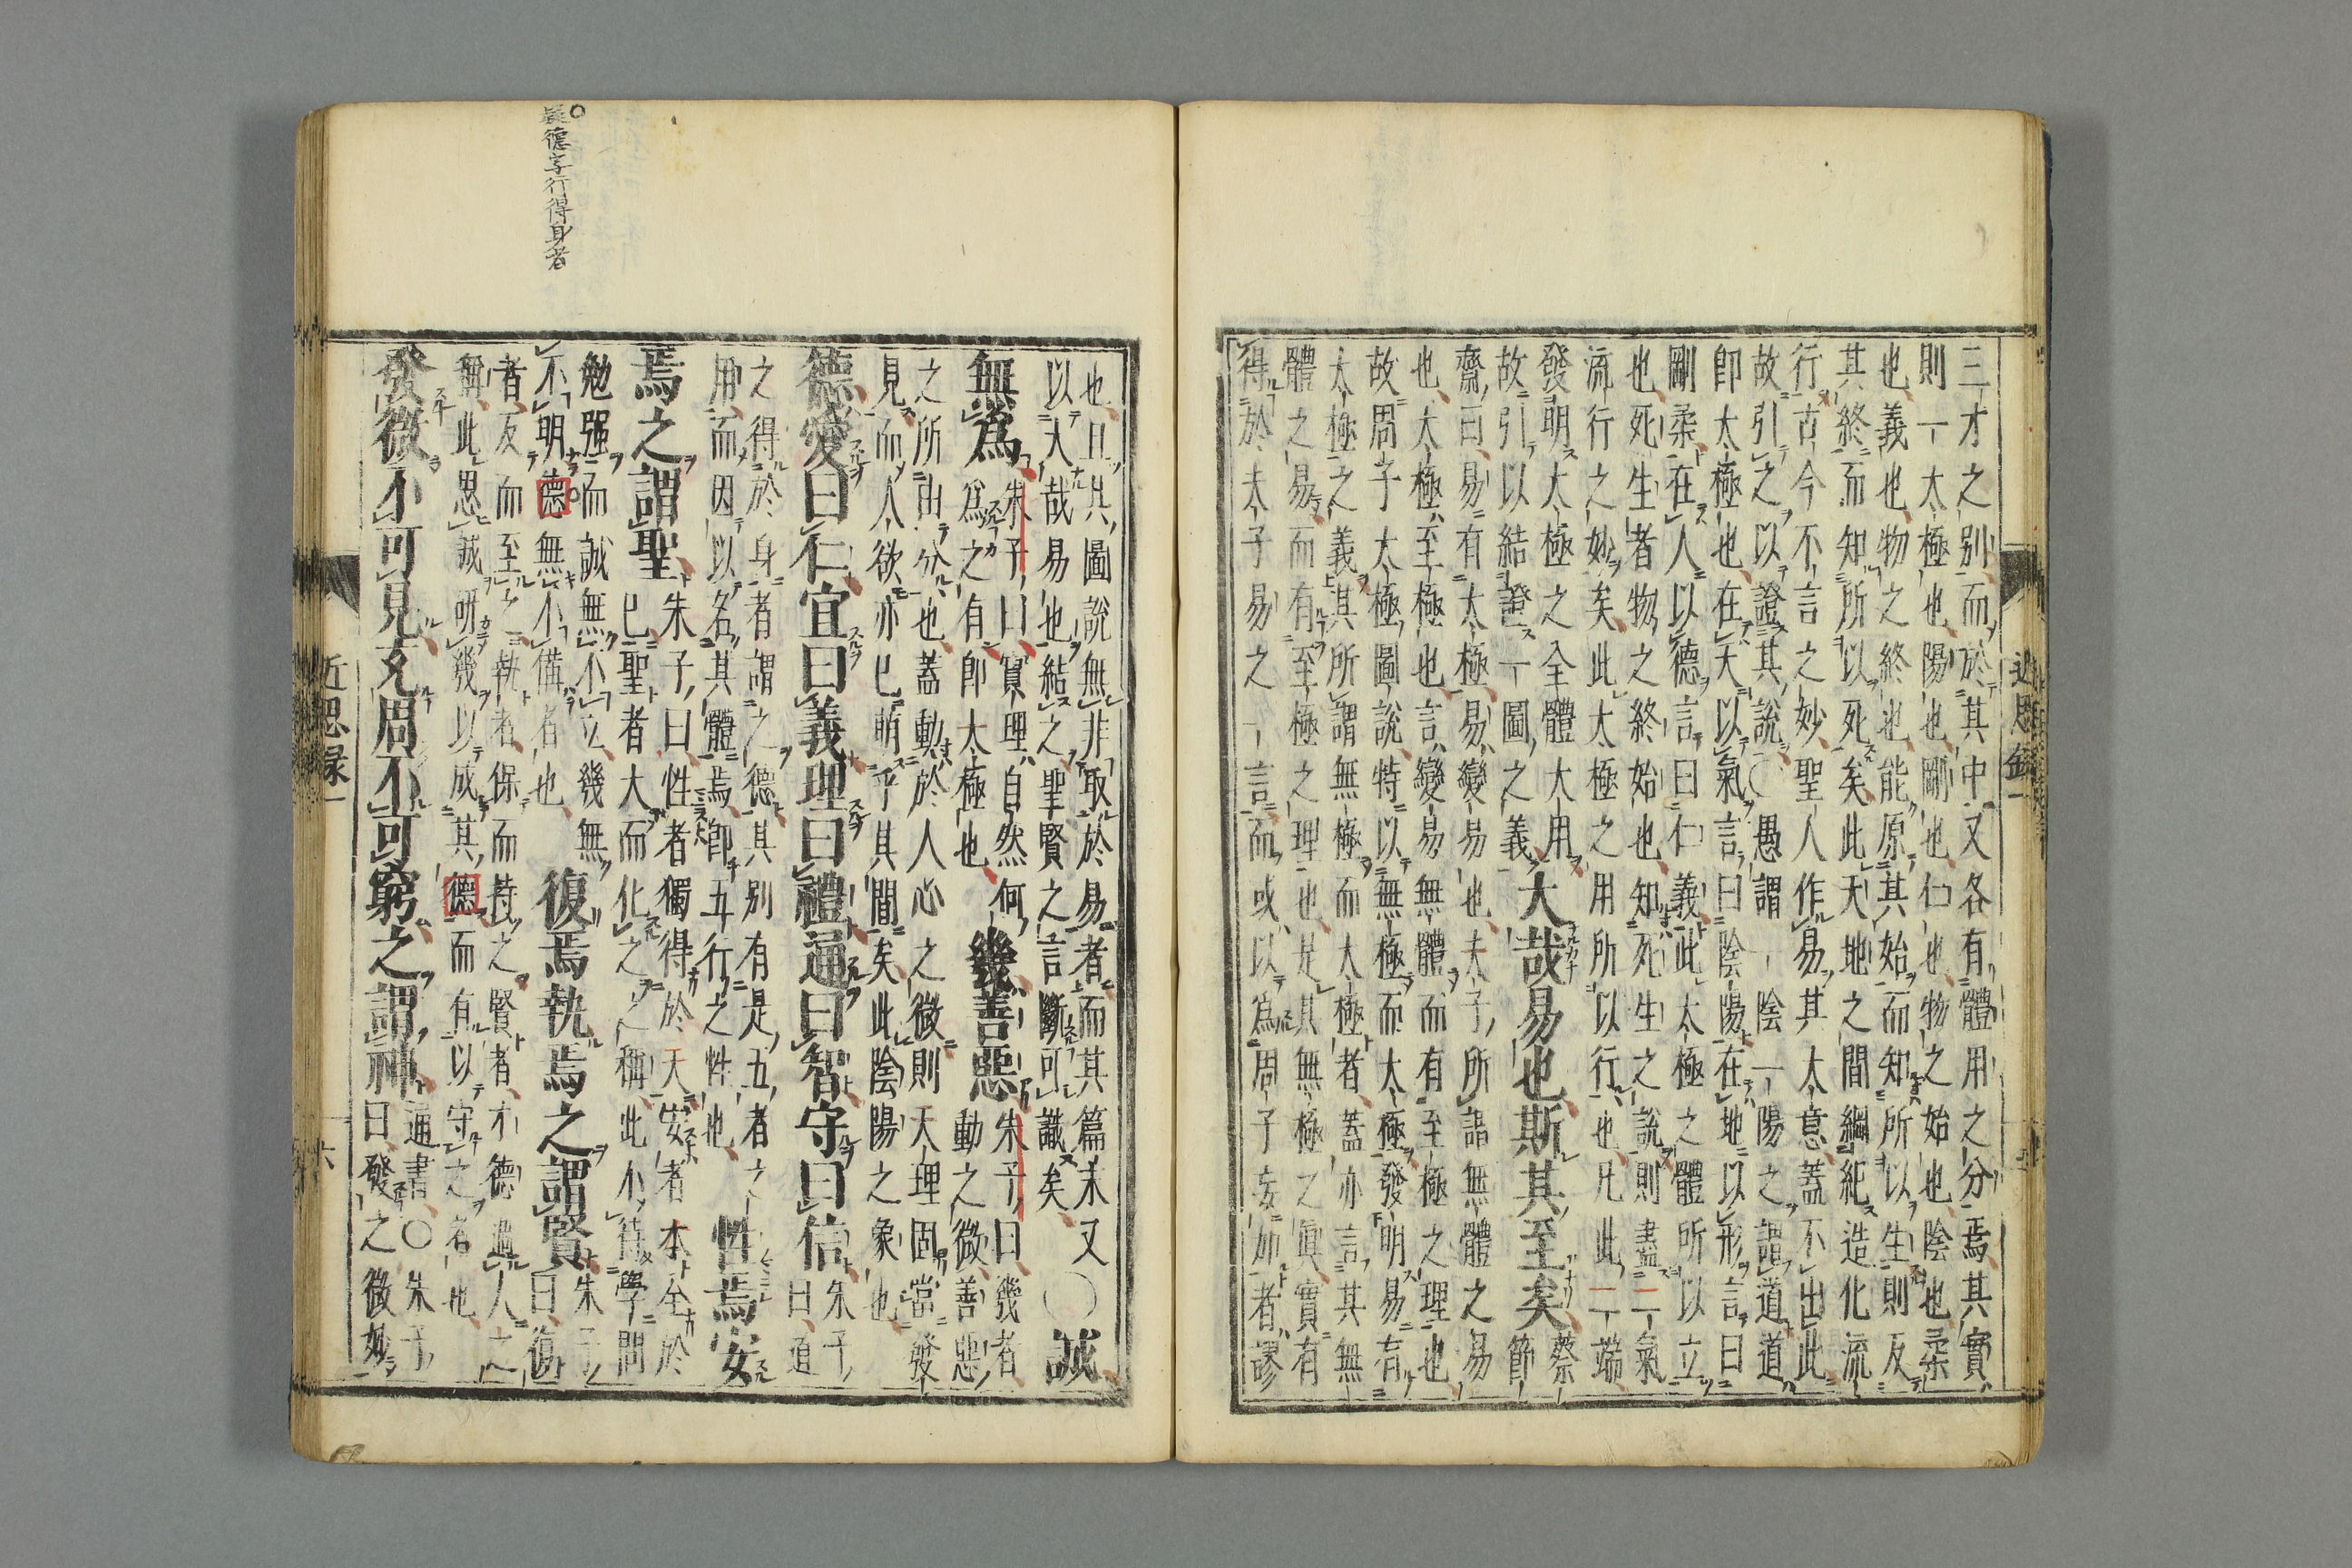 三才之別而於其中又各有體用之分焉其實
則一太極也陽也剛也仁也物之始也陰也柔
也義也物之終也能原其始而知所以生則反
其終而知所以死矣此天地之間綱紀造化流
行古今不言之妙聖人作易其大意蓋不出此
故引之以證其說〇愚謂一陰一陽之謂道道
卽太極也在天以氣言曰陰陽在地以形言曰
剛柔在人以德言曰仁義此太極之體所以立
也死生者物之終始也知死生之說則盡二氣
流行之妙矣此太極之用所以行也凡此二端
發明太極之全體大用
故引以結證一圖之義
大哉易也斯其至矣
蔡
節
齋曰易有太極易變易也夫子所謂無體之易
也太極至極也言變易無體而有至極之理也
故周子太極圖說特以無極而太極發明易有
太極之義其所謂無極而太極者蓋亦言其無
體之易而有至極之理也是其無極之眞實有
得於夫子易之一言而或以為周子妄加者謬
也且其圖說無非取於易者而其篇末又
以大哉易也結之聖賢之言斷可識矣
〇誠
無爲
朱子曰實理自然何
爲之有卽太極也
幾善惡
朱子曰幾者
動之微善惡
之所由分也蓋動於人心之微則天理固當發
見而人欲亦已萌乎其間矣此陰陽之象也
德愛曰仁宜曰義理曰禮通曰智守曰信
朱子
曰道
之得於身者謂之德其別有是五者之
用而因以名其體焉卽五行之性也
性焉安
焉之謂聖
朱子曰性者獨得於天安者本全於
已聖者大而化之之稱此不待學問
勉强而誠無不立幾無
不明德無不備者也
復焉執焉之謂賢
朱子
曰復
者反而至之執者保而持之賢者才德過人之
稱此思誠研幾以成其德而有以守之者也
發微不可見充周不可窮之謂神
通書〇朱子
曰發之微妙
近思錄一
六
德字行得身者